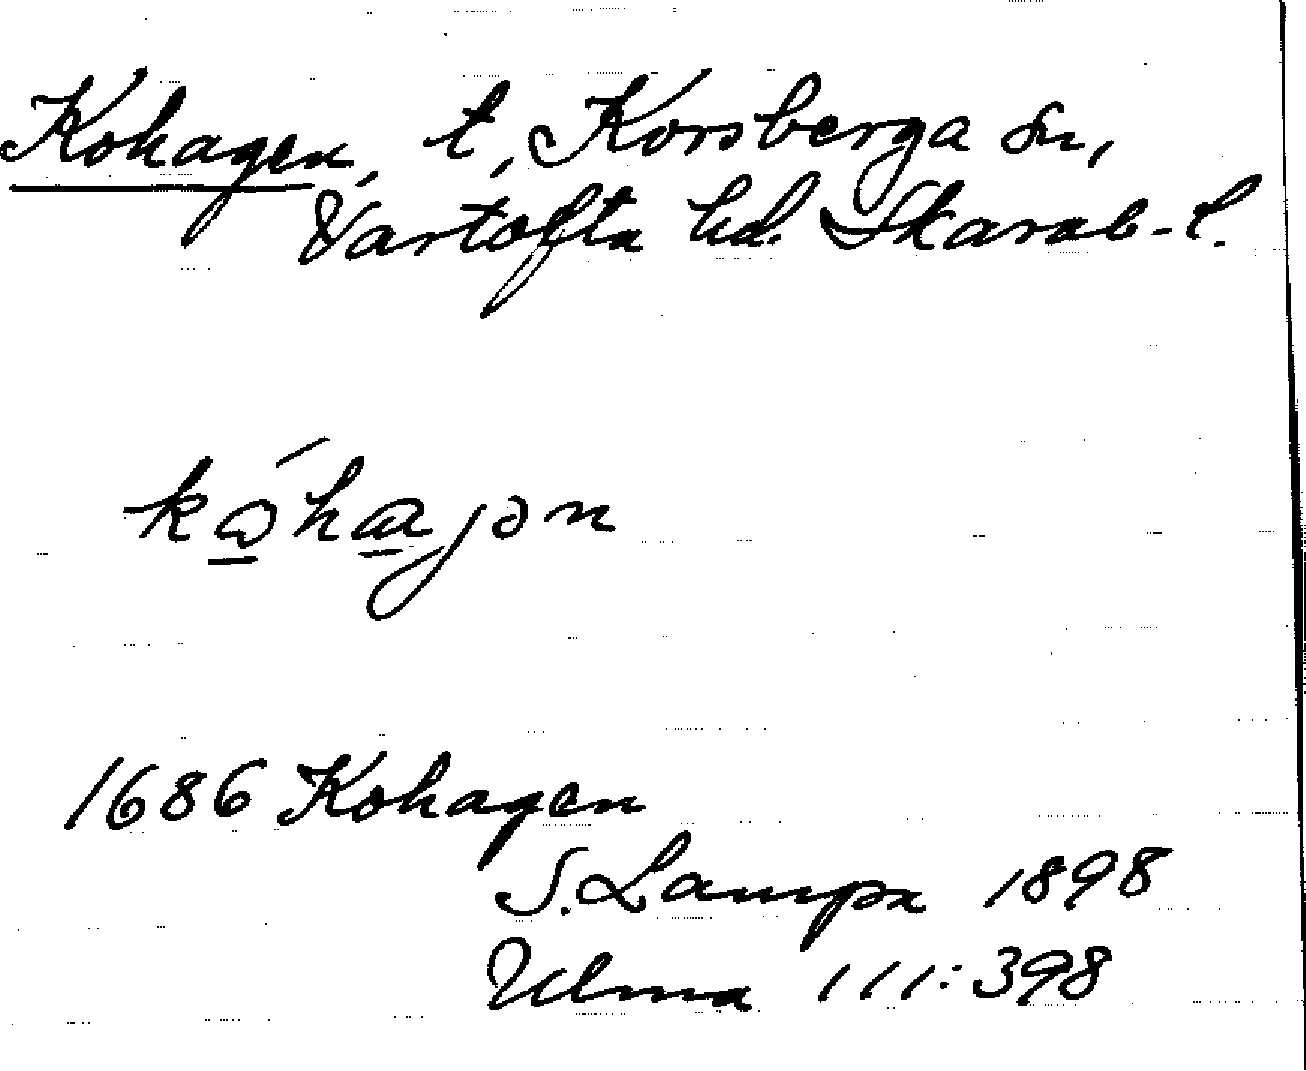 Kohagen, t, Korsberga sn,
Vartofta hd. Skarab-l.
kǫ́hɑjən
1686 Kohagen
S. Lampa 1898
Ulma 111:398